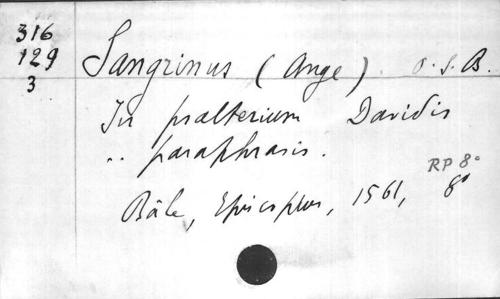 316
129
3
Sangrinus (Ange). O. S. B.
In psalterium Davidis
.. paraphrasis.
RP 8°
Bâle, Episcopius, 1561, 8°